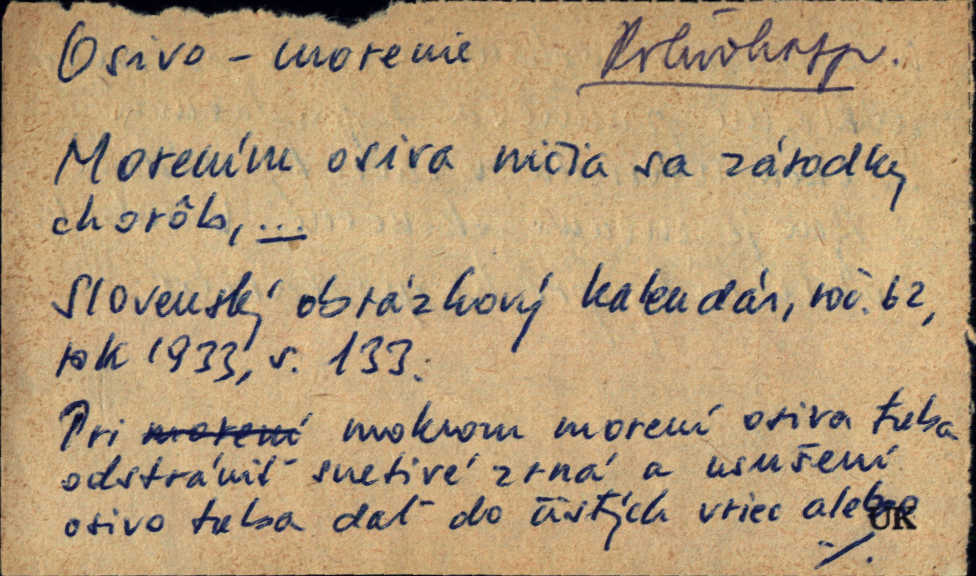 Osivo - morenie Poľnohosp.
Morením osiva ničia sa zárodky
chorôb, ...
Slovenský obrázkový kalendár, roč. 62,
rok 1933, s. 133:
Pri morení mokrom morení osiva treba
odstrániť snetivé zrná a usušení
osivo treba dať do čistých vriec alebo
UK
./.